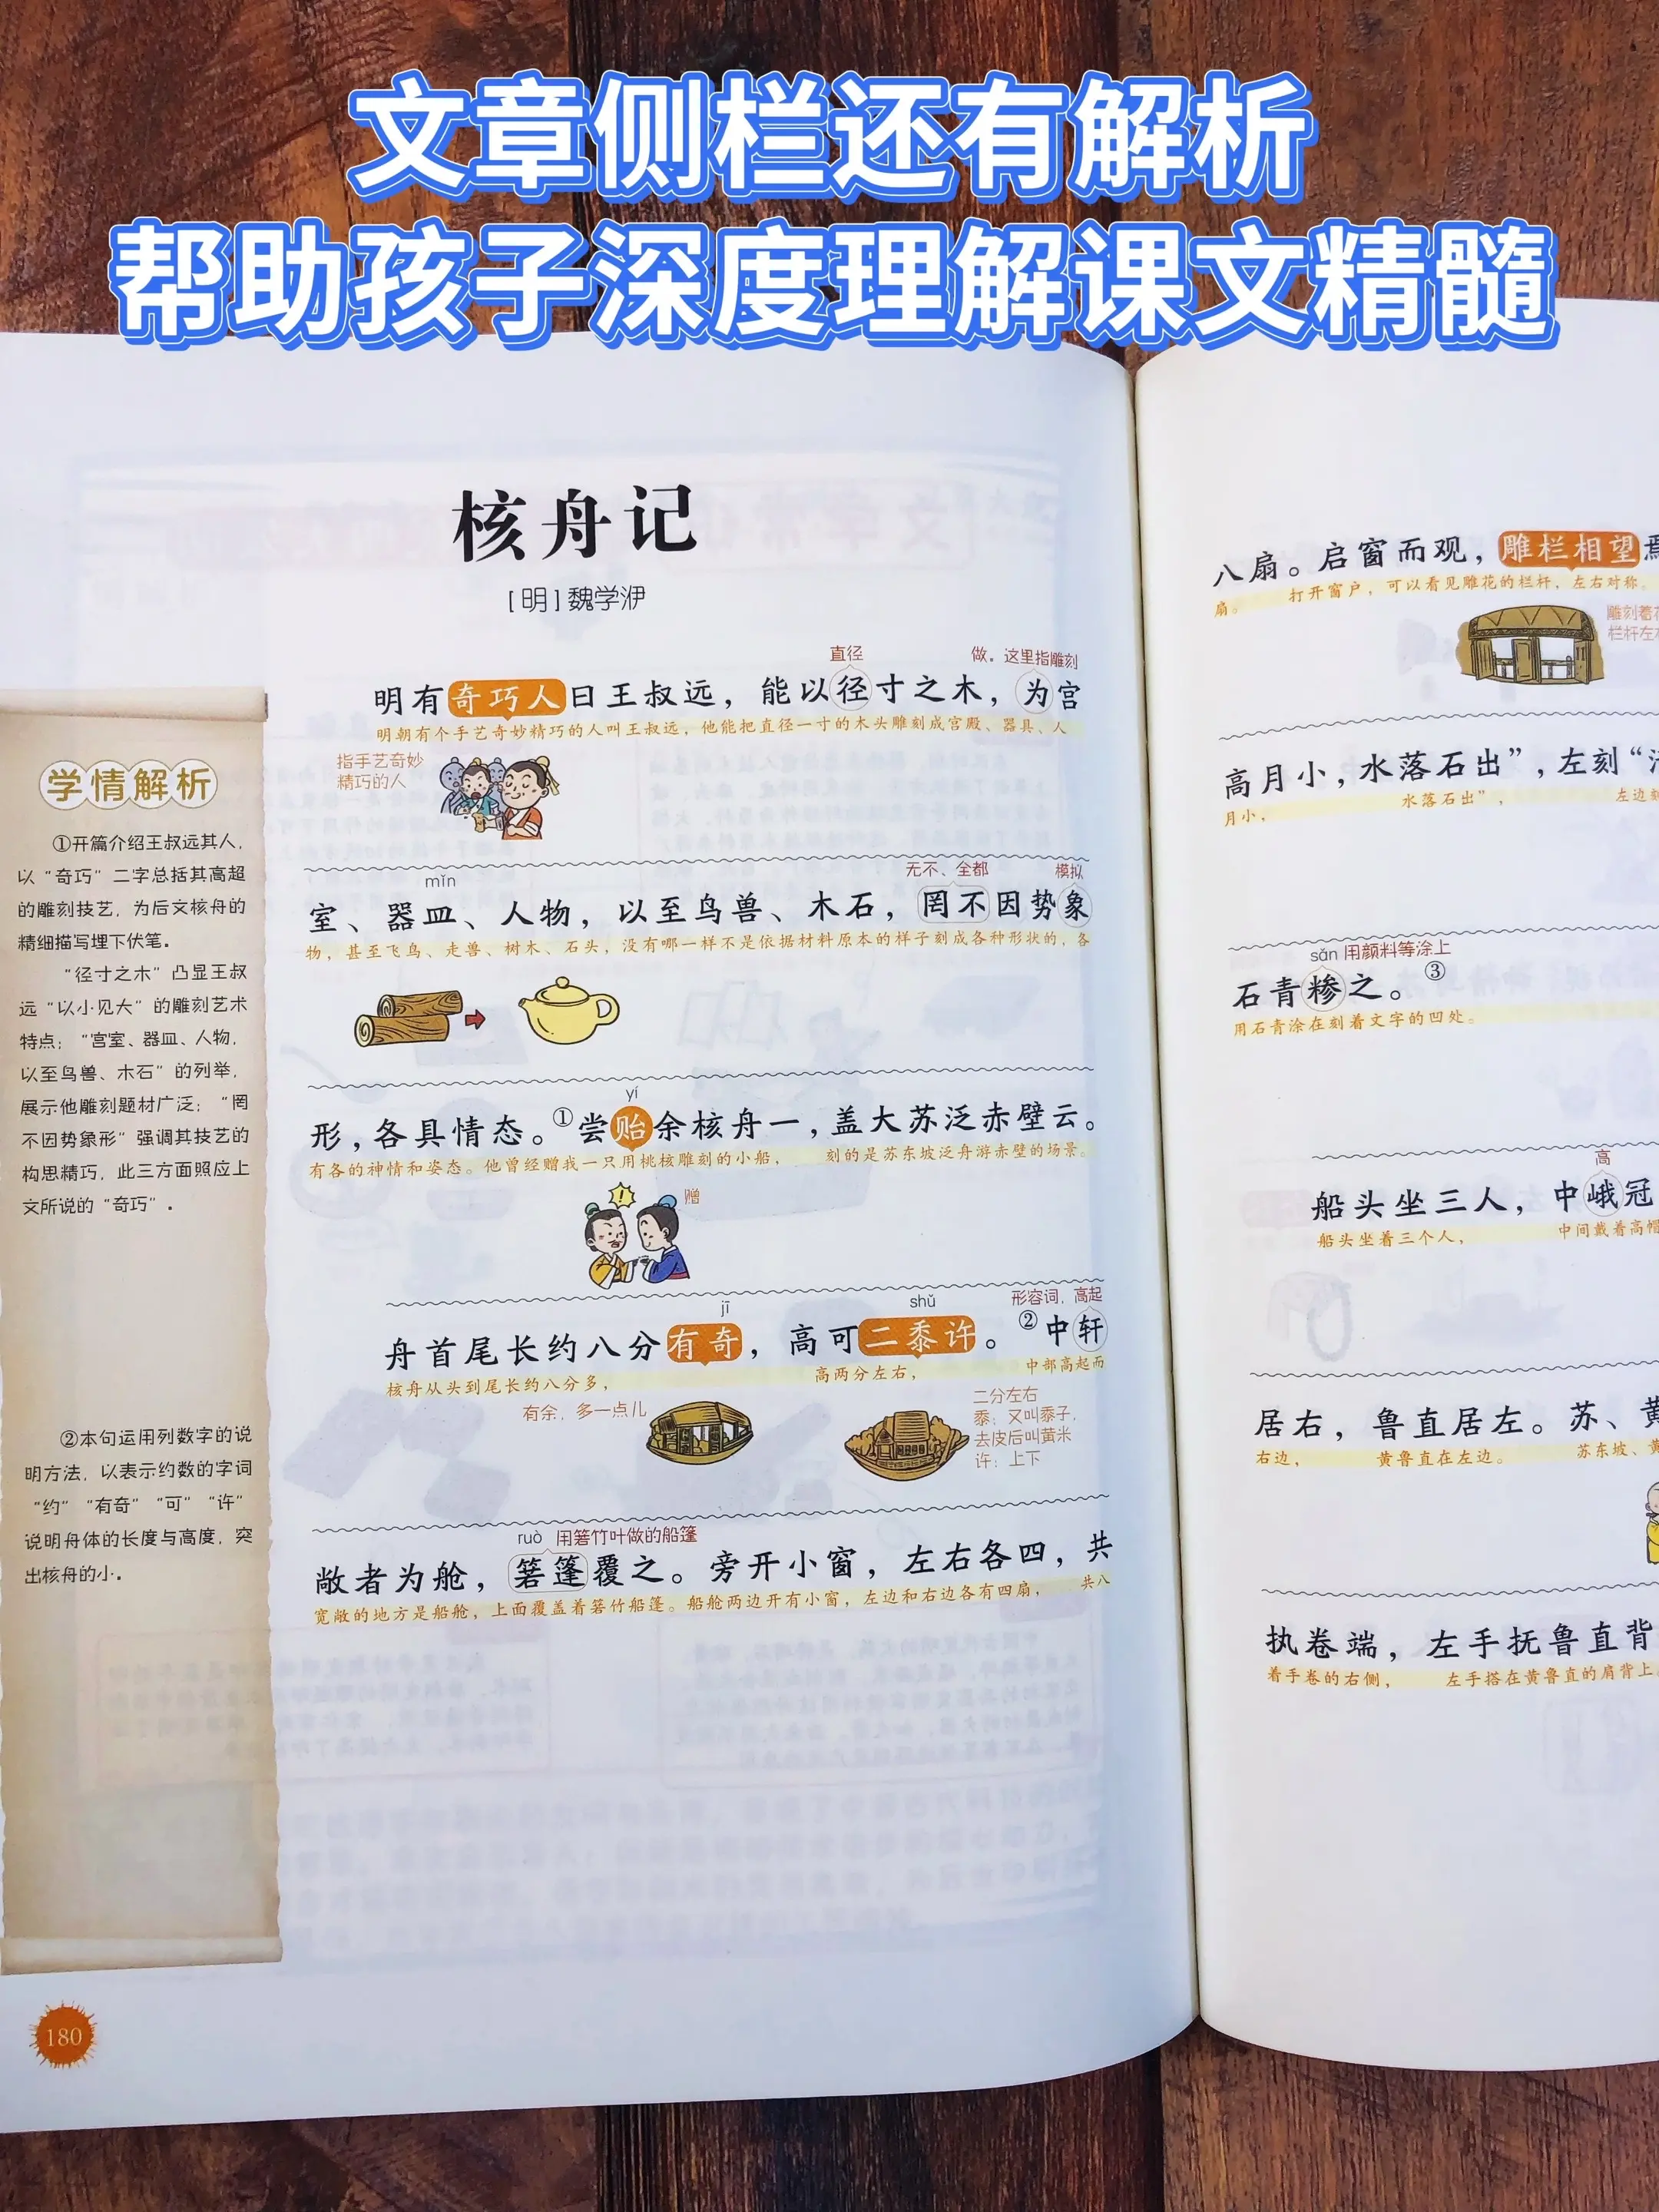 文章侧栏还有解析
帮助孩子深度理解课文精髓
核舟记
[明]魏学洢
直径
做。这里指雕刻
明有奇巧人曰王叔远，能以径寸之木，为宫
明朝有个手艺奇妙精巧的人叫王叔远，他能把直径一寸的木头雕刻成宫殿、器具、人
指手艺奇妙
精巧的人
mǐn
无不、全都
模拟
室、器皿、人物，以至鸟兽、木石，罔不因势象
物，甚至飞鸟、走兽、树木、石头，没有哪一样不是依据材料原本的样子刻成各种形状的，各
yí
形，各具情态。①尝贻余核舟一，盖大苏泛赤壁云。
有各的神情和姿态。他曾经赠我一只用桃核雕刻的小船， 刻的是苏东坡泛舟游赤壁的场景。
赠
jī
shǔ
形容词，高起
舟首尾长约八分有奇，高可二黍许。②中轩
核舟从头到尾长约八分多， 高两分左右， 中部高起而
有余，多一点儿
二分左右
黍：又叫黍子，
去皮后叫黄米
许：上下
ruò 用箬竹叶做的船篷
敞者为舱，箬篷覆之。旁开小窗，左右各四，共
宽敞的地方是船舱，上面覆盖着箬竹船篷。船舱两边开有小窗，左边和右边各有四扇， 共八
学情解析
①开篇介绍王叔远其人，
以“奇巧”二字总括其高超
的雕刻技艺，为后文核舟的
精细描写埋下伏笔。
“径寸之木”凸显王叔
远“以小见大”的雕刻艺术
特点；“宫室、器皿、人物，
以至鸟兽、木石”的列举，
展示他雕刻题材广泛；“罔
不因势象形”强调其技艺的
构思精巧，此三方面照应上
文所说的“奇巧”。
②本句运用列数字的说
明方法，以表示约数的字词
“约”“有奇”“可”“许”
说明舟体的长度与高度，突
出核舟的小。
180
八扇。启窗而观，雕栏相望焉
扇。 打开窗户，可以看见雕花的栏杆，左右对称。
雕刻着花
栏杆左右
高月小，水落石出”，左刻“清
月小， 水落石出”， 左边刻
sǎn 用颜料等涂上
石青糁之。③
用石青涂在刻着文字的凹处。
高
船头坐三人，中峨冠
船头坐着三个人， 中间戴着高帽
居右，鲁直居左。苏、黄
右边， 黄鲁直在左边。 苏东坡、黄
执卷端，左手抚鲁直背
着手卷的右侧， 左手搭在黄鲁直的肩背上